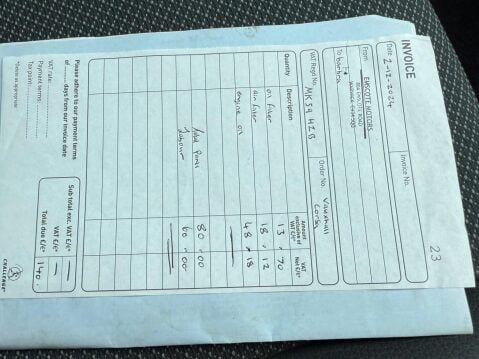 INVOICE
Invoice No. 23
Date 2-12-2024
From EMSCOTE MOTORS
To
VAT Regd No. MK59 HZB
Order No. Vauxhall Corsa
Quantity Description Amount exclusive of VAT £/€* VAT Net £/€*
oil filter 13.70
air filter 18.12
engine oil 48.18
Total Parts 80.00
Labour 60.00
Please adhere to our payment terms
of days from our invoice date
Sub total exc. VAT £/€*
VAT rate: VAT £/€*
Payment terms: Total due £/€* 140.
Tax point:
*Delete as appropriate
CHALLENGE